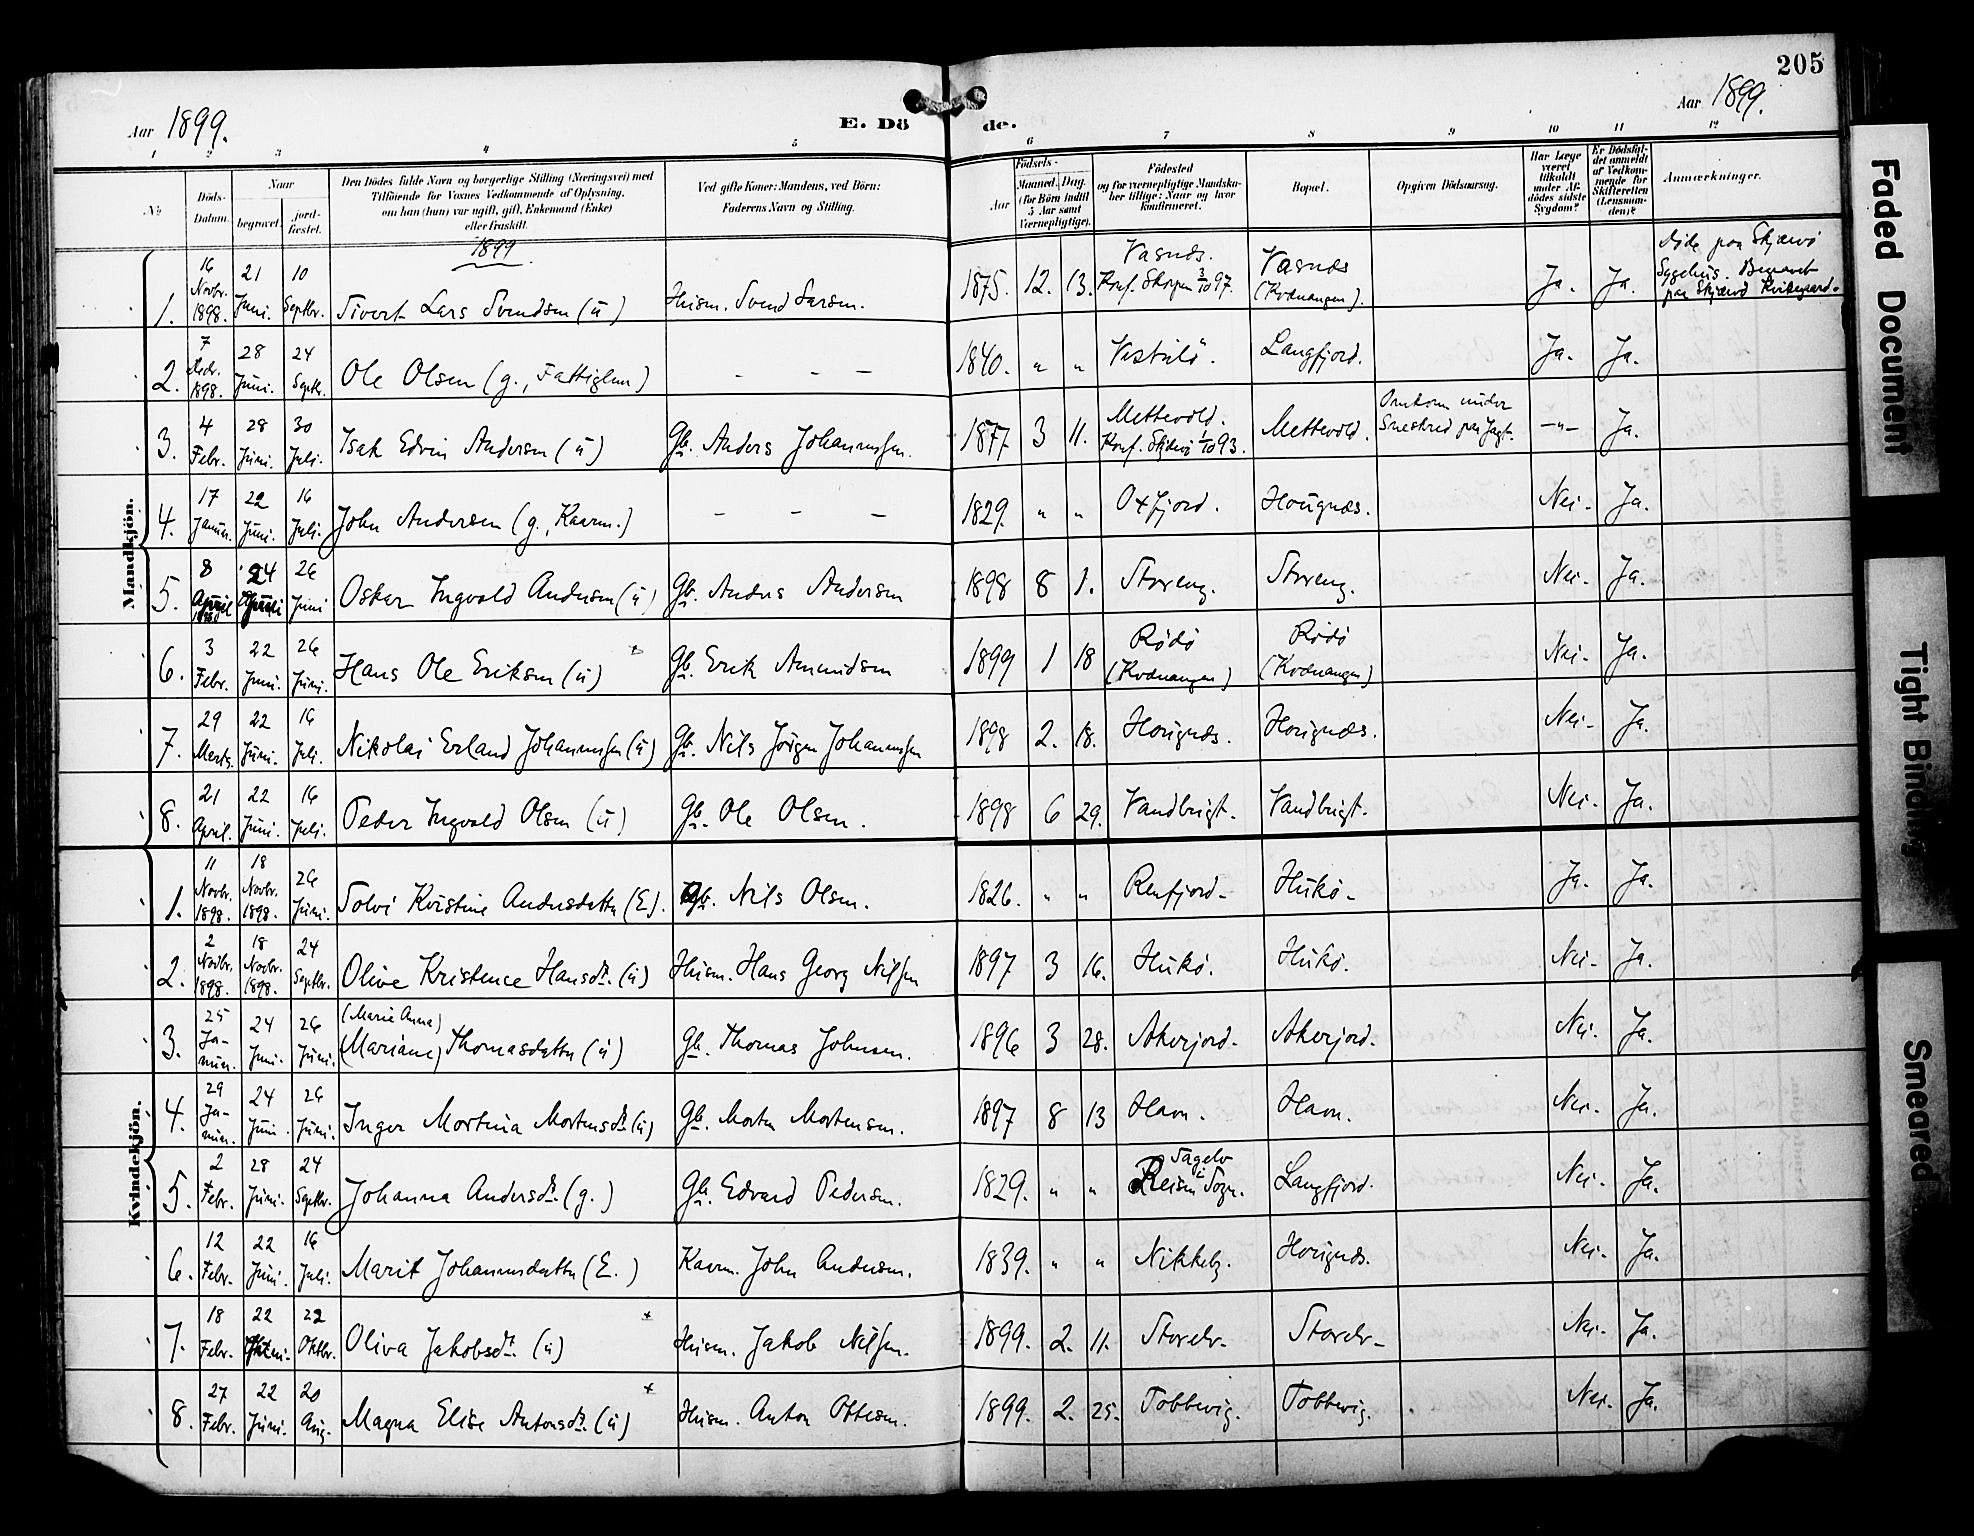 205
Aar 1899.
E. Döde.
Aar 1899.
1 2 3 4 5 6 7 8 9 10 11 12
№
Döds-Datum.
Naar
begravet.
jordfæstet.
Den Dödes fulde Navn og borgerlige Stilling (Næringsvei) med
Tilföiende for Voxnes Vedkommende af Oplysning,
om han (hun) var ugift, gift, Enkemand (Enke)
eller fraskilt.
Ved gifte Koner: Mandens, ved Börn:
Faderens Navn og Stilling.
Födsels-
Aar
Maaned. Dag.
(for Börn indtil
5 Aar samt
Værnepligtige).
Födested
og for værnepligtige Mandskaber tillige: Naar og hvor
konfirmeret.
Bopæl.
Opgiven Dödsaarsag.
Har Læge
været
tilkaldt
under Afdödes sidste
Sygdom?
Er Dödsfaldet anmeldt
af Vedkommende for
Skifteretten
(Lensmanden)?
Anmærkninger.
Mandkjön.
1899
1. 16 Novbr. 1898. 21 Juni. 10 Septbr. Sivert Lars Svendsen (ü) Husm. Svend Larsen. 1875. 12. 13. Vasnæs. Konf. Skorpen 3/10 97. Vasnæs (Kvænangen). Ja. Ja. Døde paa Skjærvö Sygehus. Begravet paa Skjærvö Kirkegaard.
2. 7 Decbr. 1898. 28 Juni. 24 Septbr. Ole Olsen (g., Fattiglem) - - - 1840. " " Langfjord. Ja. Ja.
3. 4 Febr. 28 Juni. 30 Juli. Isak Edvin Andersen (ü) Gb. Anders Johannessen. 1877 3 11. Mettevold. Konf. Skjærvö 1/10 93. Mettevold. Omkom under Sneskred paa Jagt. -"- Ja.
4. 17 Januar. 22 Juni. 16 Juli. John Andersen (g., Kaarm.) - - - 1829. " " Oxfjord. Houignæs. Nei. Ja.
5. 8 April 24 Juni 26 Juni Oskar Ingvald Andersen (ü) Gb. Anders Andersen 1898 8 1. Storeng. Storeng. Nei. Ja.
6. 3 Febr. 22 Juni. 26 Juni. Hans Ole Eriksen (ü) Gb. Erik Amundsen 1899 1 18 Rödö (Kvænangen) Rödö (Kvænangen) Nei. Ja.
7. 29 Marts. 22 Juni. 16 Juli. Nikolai Erland Johannessen (ü) Gb. Nils Jörgen Johannessen 1898 2. 18. Houignæs. Houignæs. Nei. Ja.
8. 21 April. 22 Juni. 16 Juli. Peder Ingvald Olsen (ü) Gb. Ole Olsen. 1898 6 29. Vandbugt. Vandbugt. Nei. Ja.
Kvindekjön.
1. 11 Novbr. 1898. 18 Novbr. 1898. 26 Juni. Solvi Kristine Andersdatter (E). Gb. Nils Olsen. 1826. " " Renfjord. Hukö. Ja. Ja.
2. 2 Novbr. 1898. 18 Novbr. 1898. 24 Septbr. Olive Kristence Hansdt. (ü) Husm. Hans Georg Nilsen 1897 3 16. Hukö. Hukö. Nei. Ja.
3. 25 Januar. 24 Juni. 26 Juni. (Marie Anna) (Mariane) Thomasdatter (ü) Gb. Thomas Johnsen. 1896 3 28. Akerjord. Akerjord. Nei. Ja.
4. 29 Januar. 24 Juni. 26 Juni. Inger Mortina Mortensdt. (ü) Gb. Morten Mortensen. 1897 8 13 Havn. Havn. Nei. Ja.
5. 2 Febr. 28 Juni. 24 Septbr. Johanna Andersdt. (g.) Gb. Edvard Pedersen. 1829. " " Tagelv i Reisen Sogn. Langfjord. Nei. Ja.
6. 12 Febr. 22 Juni. 16 Juli. Marit Johannesdatter (E.) Kaarm. John Andersen. 1839. " " Nikkelg. Houignæs. Nei. Ja.
7. 18 Febr. 22 Juni. 22 Oktbr. Oliva Jakobsdt. (ü) Husm. Jakob Nilsen. 1899. 2. 11. Storelv. Storelv Nei. Ja.
8. 27 Febr. 22 Juni. 20 Aug. Magna Elise Antonsdt. (ü) Husm. Anton Ottesen. 1899. 2. 25. Tobbevig. Tobbevig. Nei. Ja.
Faded Document
Tight Binding
Smeared